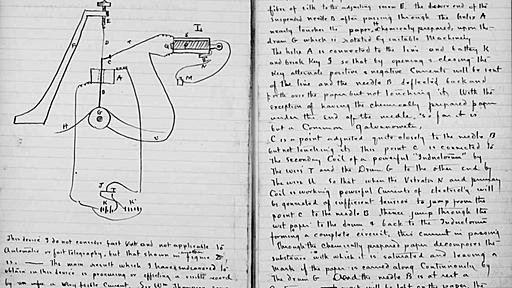 This device I do not consider fast but and not applicable to
Automatic or fast telegraphy, but that shown in figure
is. The main result which I have endeavored to
obtain in this device is procuring or effecting a visible record
by a very feeble Current. Sir Wm Thompson
fibre of silk to the adjusting screw E. the desired end of the
suspended needle B after passing through the helix A
nearly touches the paper, chemically prepared, upon the
drum G which is rotated by suitable Machinery
The helix A is connected to the line and battery K
and break Key I so that by opening & closing the
Key alternate positive & negative Currents will be sent
of the line and the needle B deflected back and
forth over the paper but not touching it, With the
exception of having the chemically prepared paper
under the end of the needle, so far it is
but a Common Galvanometer,
C is a point adjusted quite closely to the needle B
but not touching it. This point C is connected to
the Secondary Coil of a powerful "Inductorium" by
the wire T and the Drum G to the other end by
the wire U So that when the Vibrator N and primary
Coil is working powerful Currents of electricity will
be generated of sufficient tension to jump from the
point C to the needle B, thence jump through the
wet paper to the drum & back to the Inductorium
forming a complete circuit, this current in passing
through the chemically prepared paper decomposes the
substance with which it is saturated and leaving a
Mark if the paper is carried along Continuously by
The drum G and the needle B is at rest a
will be left on the paper, the